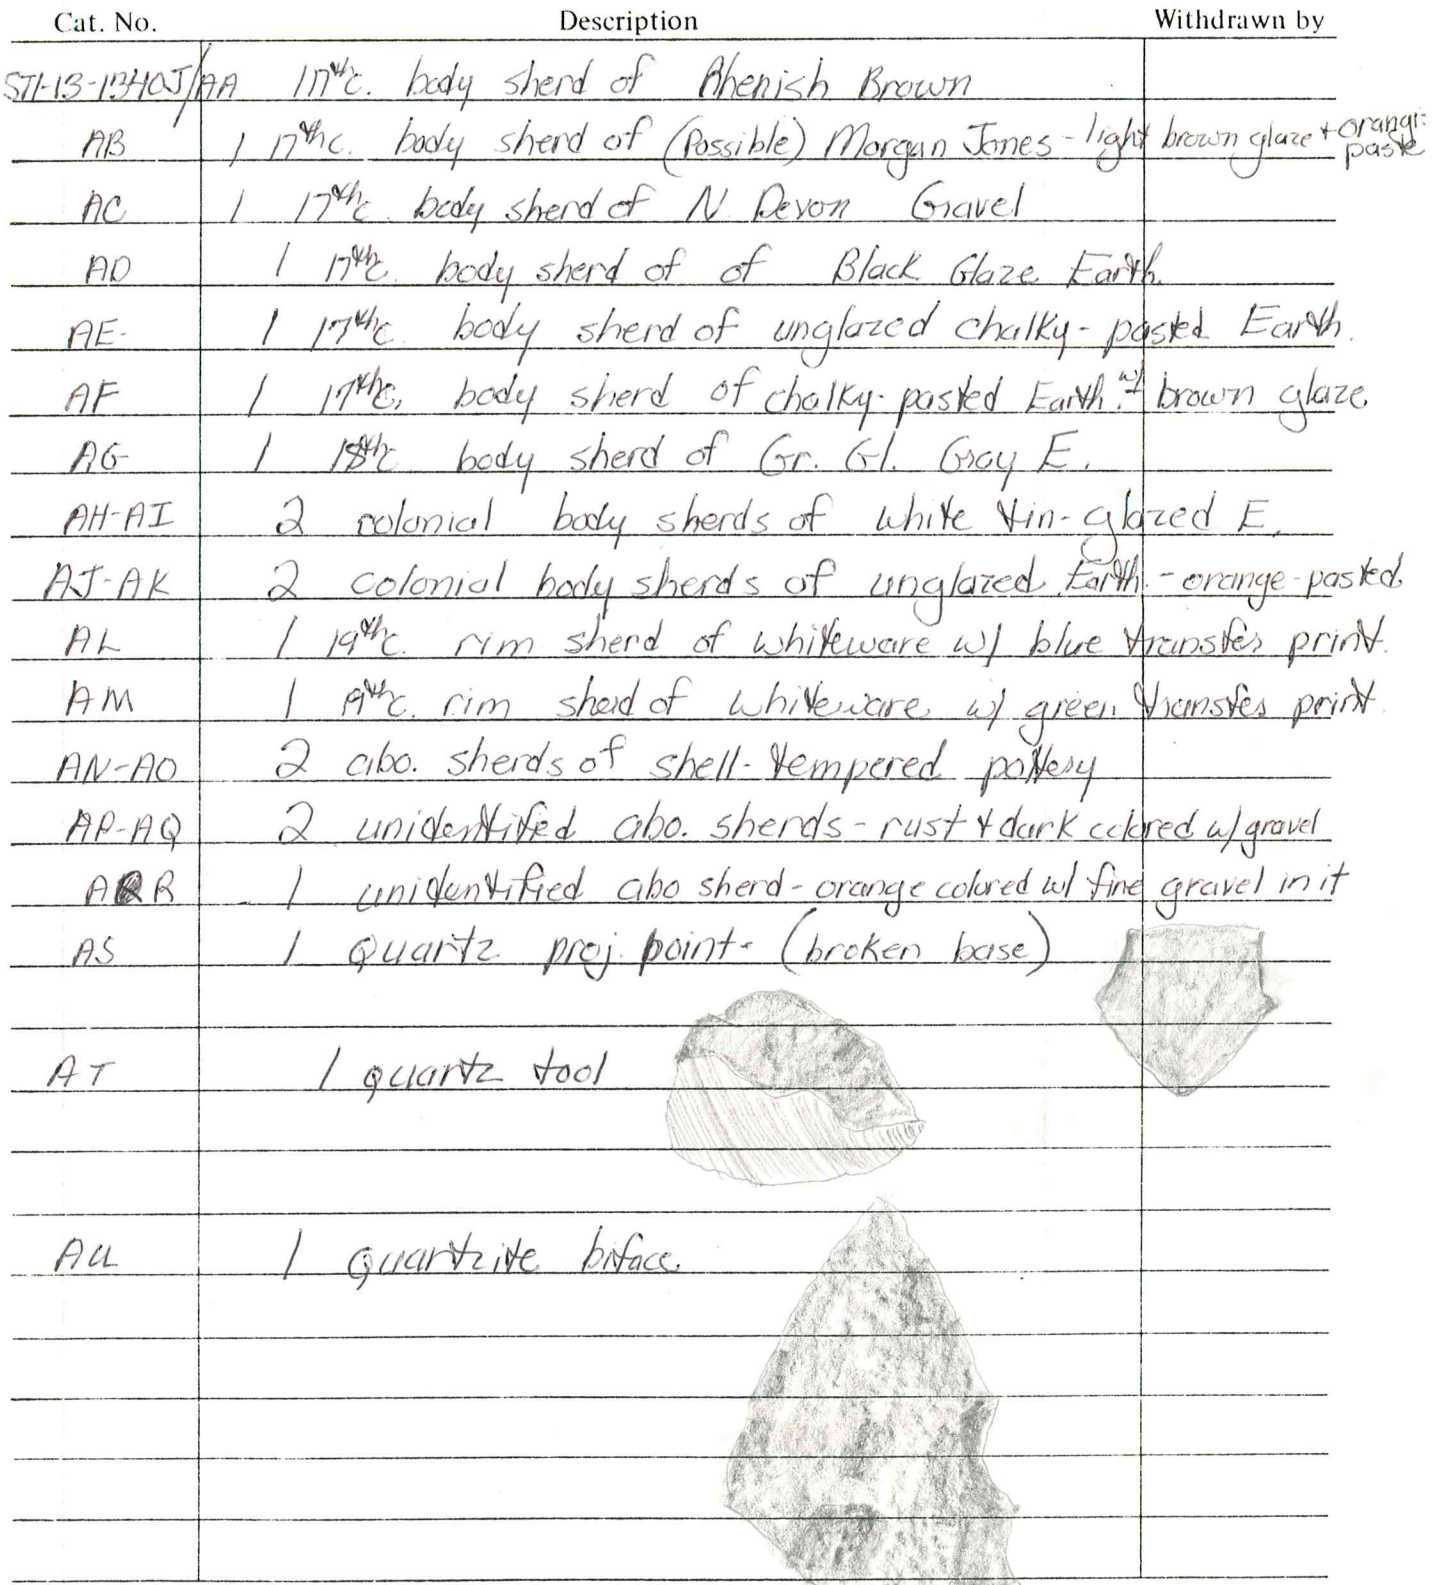 Cat. No. Description Withdrawn by
ST1-13-1340J/AA 1 17th c. body sherd of Rhenish Brown
AB 1 17th c. body sherd of (Possible) Morgan Jones - light brown glaze + orange paste
AC 1 17th c. body sherd of N. Devon Gravel
AD 1 17th c. body sherd of of Black Glaze Earth.
AE 1 17th c. body sherd of unglazed chalky-pasted Earth.
AF 1 17th c. body sherd of chalky-pasted Earth. w/ brown glaze
AG 1 18th c. body sherd of Gr. Gl. Gray E.
AH-AI 2 colonial body sherds of white tin-glazed E.
AJ-AK 2 colonial body sherds of unglazed Earth. - orange-pasted
AL 1 19th c. rim sherd of whiteware w/ blue transfer print.
AM 1 19th c. rim sherd of whiteware w/ green transfer print.
AN-AO 2 abo. sherds of shell-tempered pottery
AP-AQ 2 unidentified abo. sherds - rust + dark colored w/ gravel
AR 1 unidentified abo sherd - orange colored w/ fine gravel in it
AS 1 Quartz proj. point - (broken base)
AT 1 quartz tool
AU 1 Quartzite biface